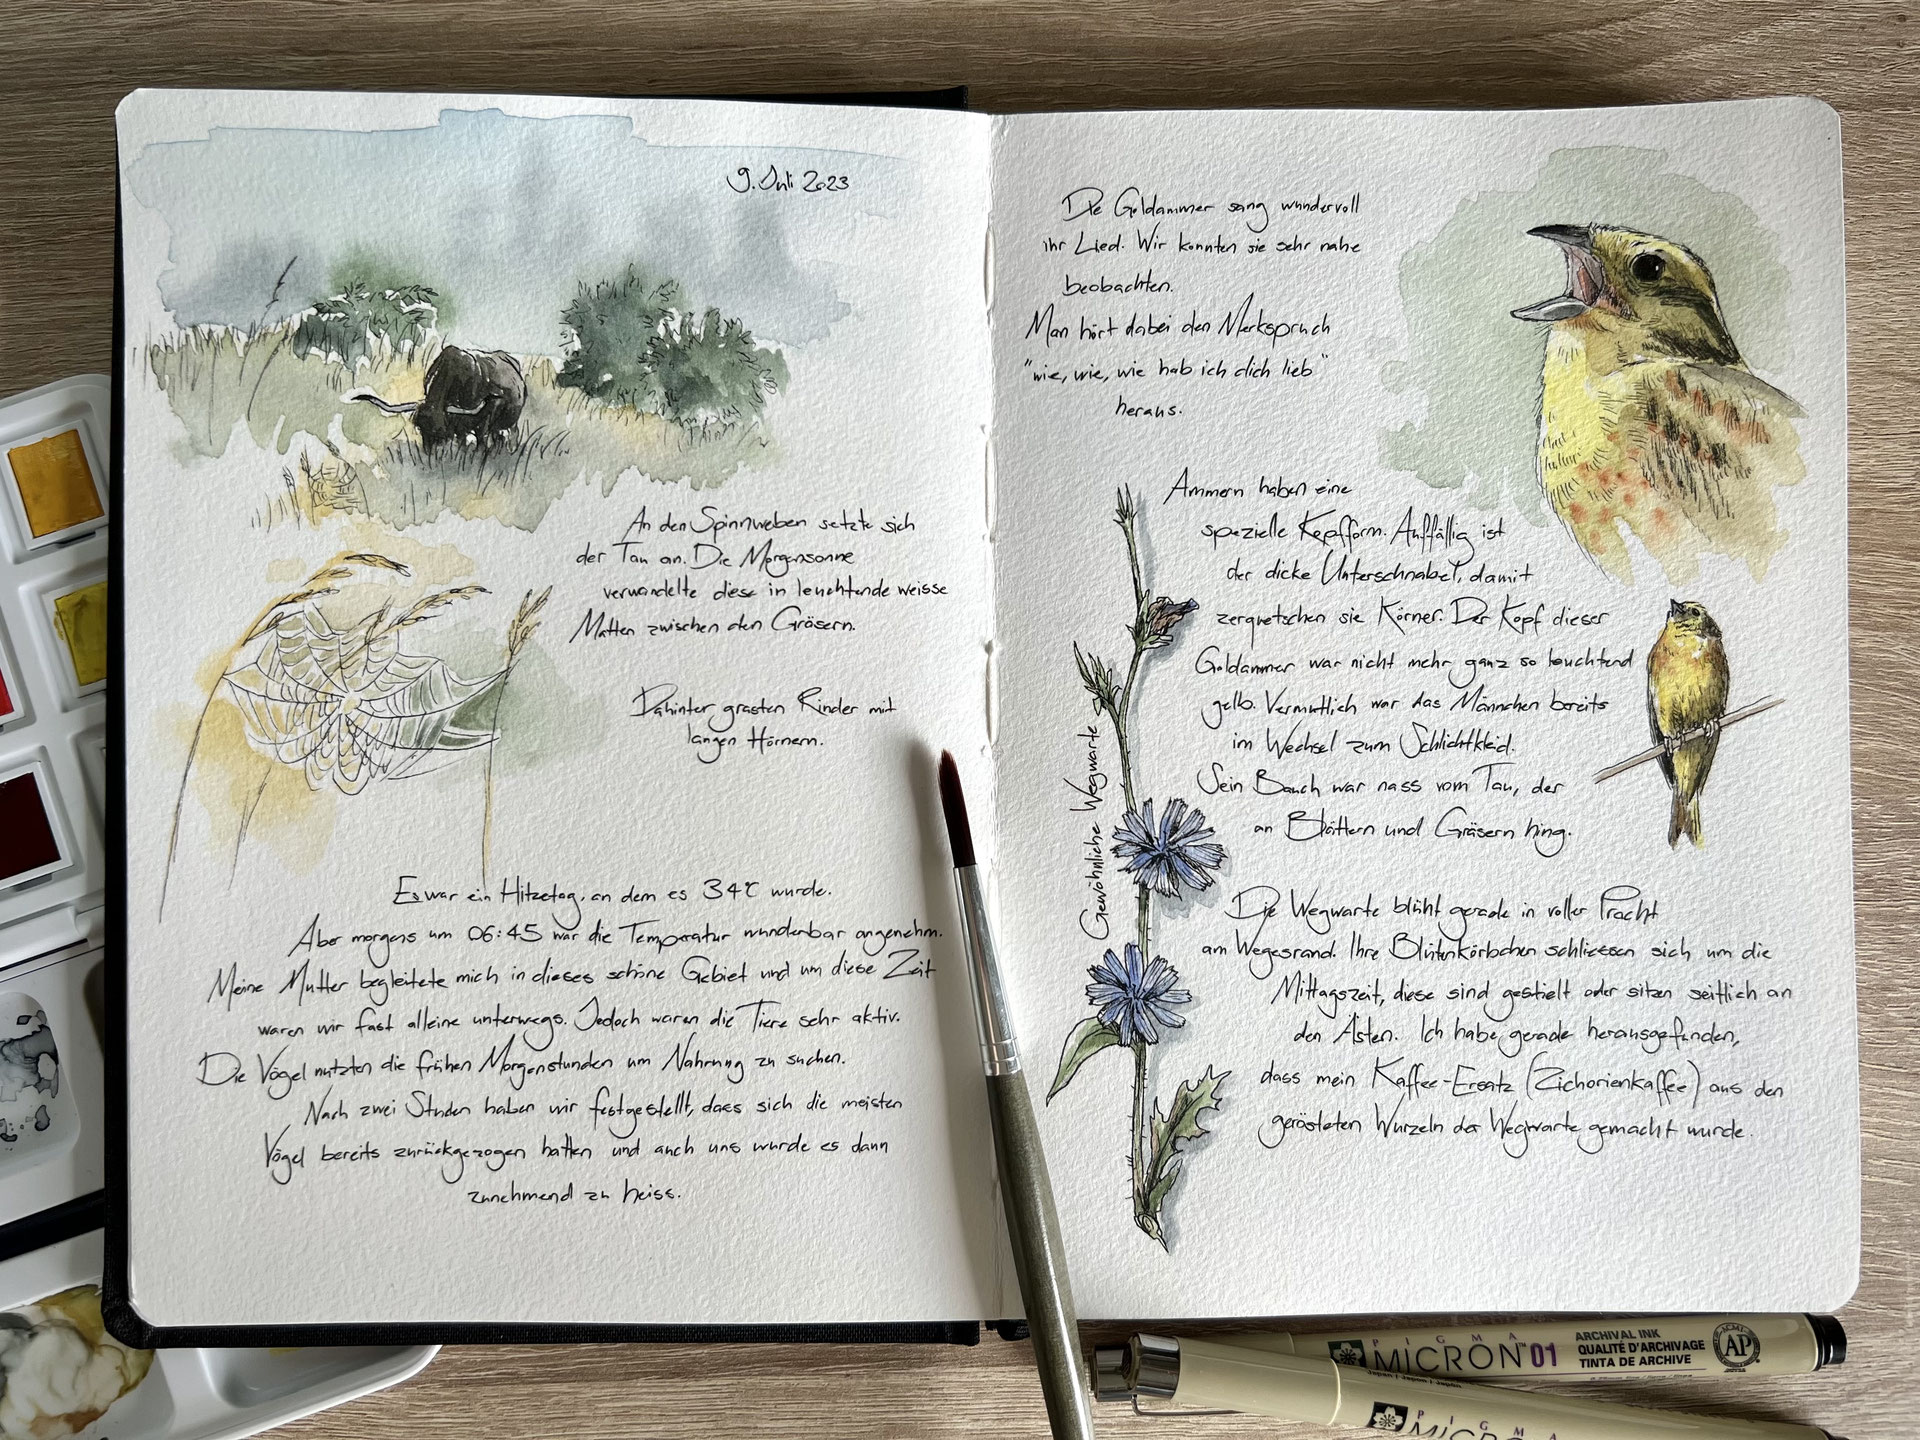 9. Juli 2023
An den Spinnweben setzte sich
der Tau an. Die Morgensonne
verwandelte diese in leuchtende weisse
Matten zwischen den Gräsern.
Dahinter grasten Rinder mit
langen Hörnern.
Es war ein Hitzetag, an dem es 34°C wurde.
Aber morgens um 06:45 war die Temperatur wunderbar angenehm.
Meine Mutter begleitete mich in dieses schöne Gebiet und um diese Zeit
waren wir fast alleine unterwegs. Jedoch waren die Tiere sehr aktiv.
Die Vögel nutzten die frühen Morgenstunden um Nahrung zu suchen.
Nach zwei Stunden haben wir festgestellt, dass sich die meisten
Vögel bereits zurückgezogen hatten und auch uns wurde es dann
zunehmend zu heiss.
Die Goldammer sang wundervoll
ihr Lied. Wir konnten sie sehr nahe
beobachten.
Man hört dabei den Merkspruch
"wie, wie, wie hab ich dich lieb"
heraus.
Ammern haben eine
spezielle Kopfform. Auffällig ist
der dicke Unterschnabel, damit
zerquetschen sie Körner. Der Kopf dieser
Goldammer war nicht mehr ganz so leuchtend
gelb. Vermutlich war das Männchen bereits
im Wechsel zum Schlichtkleid.
Sein Bauch war nass vom Tau, der
an Blättern und Gräsern hing.
Gewöhnliche Wegwarte
Die Wegwarte blüht gerade in voller Pracht
am Wegesrand. Ihre Blütenkörbchen schliessen sich um die
Mittagszeit, diese sind gestielt oder sitzen seitlich an
den Ästen. Ich habe gerade herausgefunden,
dass mein Kaffee-Ersatz (Zichorienkaffee) aus den
gerösteten Wurzeln der Wegwarte gemacht wurde.
PIGMA
MICRON™ 01
ARCHIVAL INK
QUALITÉ D'ARCHIVAGE
TINTA DE ARCHIVE
AP
PIGMA
MICRON